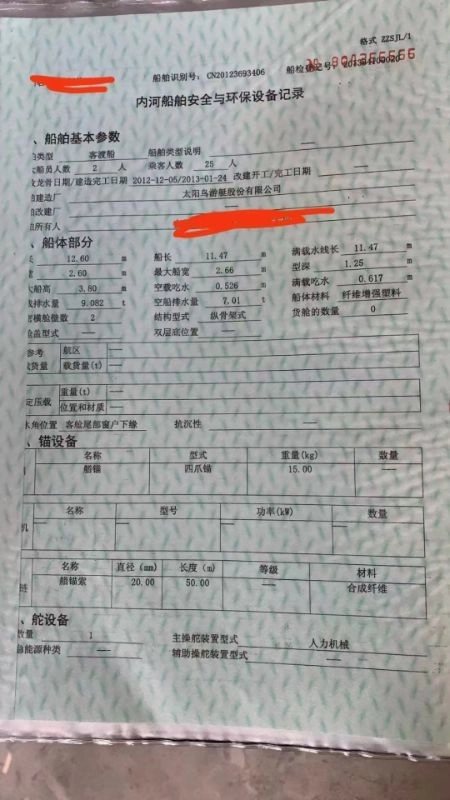 格式 ZZSJL/1
船舶识别号: CN20123693406 船检登记号:
内河船舶安全与环保设备记录
、船舶基本参数
舶类型 客渡船 船舶类型说明 —
船员人数 2 人 乘客人数 25 人
龙骨日期/建造完工日期 2012-12-05/2013-01-24 改建开工/完工日期 —
舶建造厂 太阳鸟游艇股份有限公司
舶改建厂 —
舶所有人
、船体部分
12.60 m 船长 11.47 m 满载水线长 11.47 m
宽 2.60 m 最大船宽 2.66 m 型深 1.25 m
大船高 3.80 m 空载吃水 0.526 m 满载吃水 0.617 m
排水量 9.082 t 空船排水量 7.01 t 船体材料 纤维增强塑料
密横舱数 2 结构型式 纵骨架式 货舱的数量 0
舱盖型式 — 双层底位置 —
参考 航区 —
载货量 载货量(t) —
定压载 重量(t) —
位置和材质 —
水角位置 客舱尾部窗户下缘 抗沉性 —
、锚设备
名称 型式 重量(kg) 数量
艏锚 四爪锚 15.00 —
机 名称 型号 功率(kW) 数量
— — — —
链 名称 直径 (mm) 长度 (m) 等级 材料
艏锚索 20.00 50.00 — 合成纤维
、舵设备
数量 1 主操舵装置型式 人力机械
急能源种类 — 辅助操舵装置型式 —